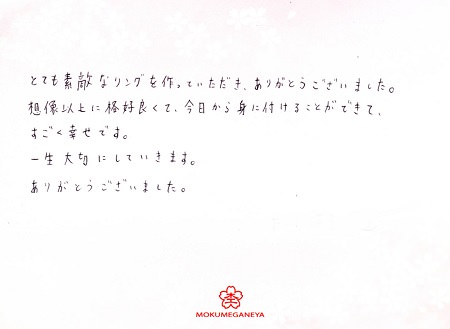 とても素敵なリングを作っていただき、ありがとうございました。
想像以上に格好良くて、今日から身に付けることができて、
すごく幸せです。
一生大切にしていきます。
ありがとうございました。
MOKUMEGANEYA